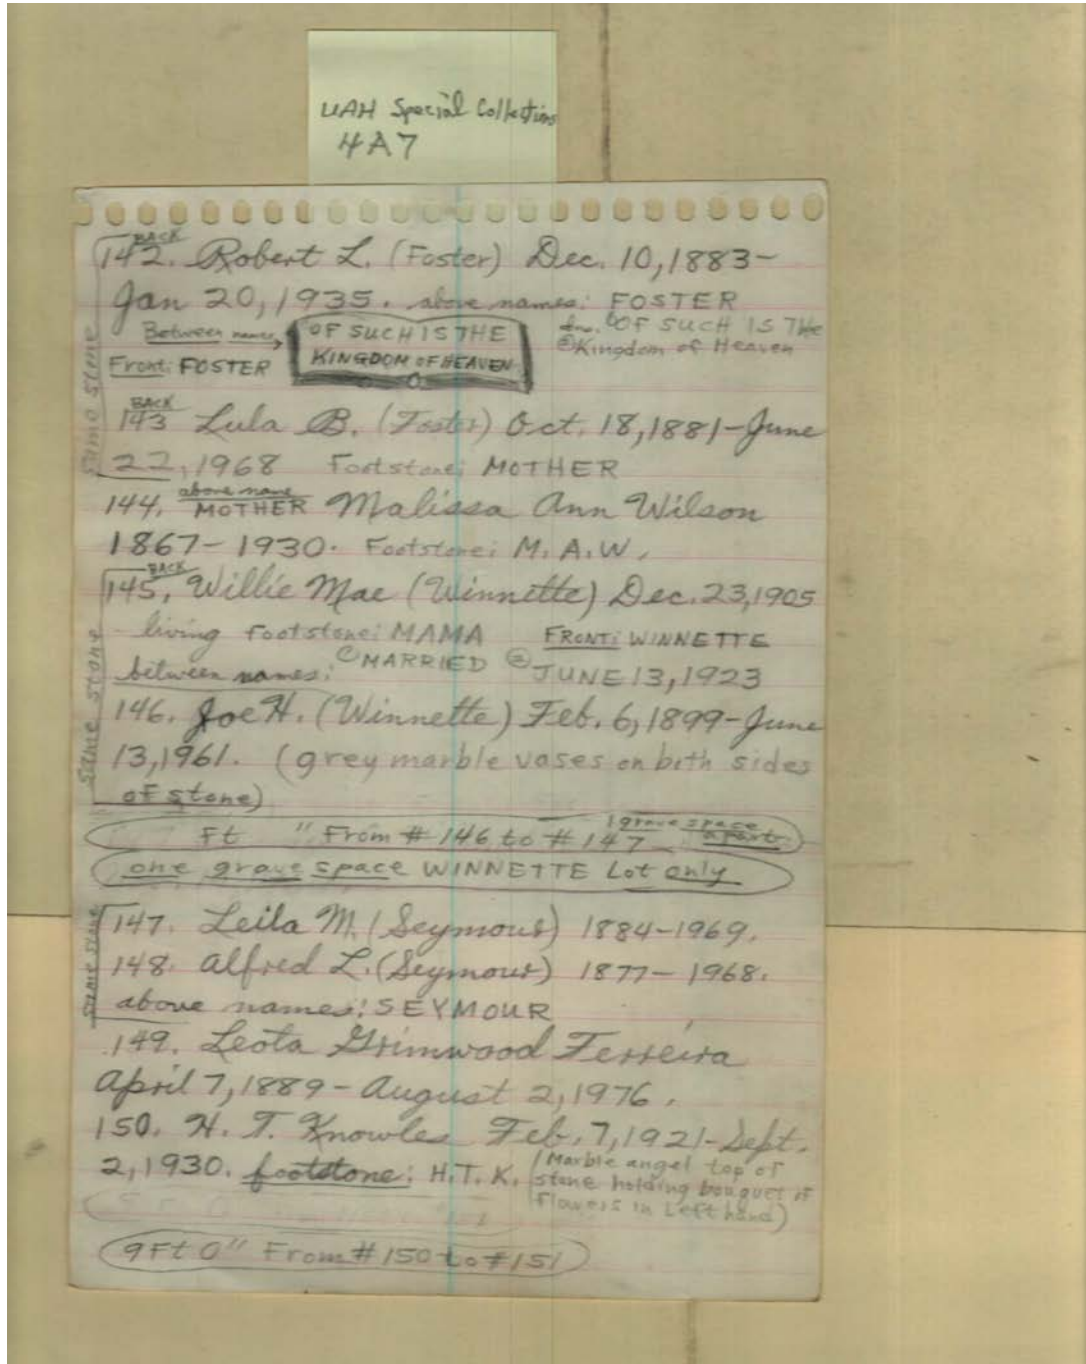 UAH Special Collections
4A7
BACK
142. Robert L. (Foster) Dec. 10, 1883-
Jan 20, 1935. above names: FOSTER
Between names OF SUCH IS THE
KINGDOM OF HEAVEN
OF SUCH IS THE
Kingdom of Heaven
Front: FOSTER
Same stone
BACK
143 Lula B. (Foster) Oct. 18, 1881-June
22, 1968 Footstone: MOTHER
above name
144. MOTHER Malissa Ann Wilson
1867-1930. Footstone: M. A. W.
BACK
145. Willie Mae (Winnette) Dec. 23, 1905
living footstone: MAMA FRONT: WINNETTE
between names: ① MARRIED ② JUNE 13, 1923
Same stone
146. Joe H. (Winnette) Feb. 6, 1899-June
13, 1961. (grey marble vases on both sides
of stone)
Ft " From # 146 to # 147 1 grave space apart
one grave space WINNETTE Lot only
Same stone
147. Leila M. (Seymour) 1884-1969.
148. Alfred L. (Seymour) 1877-1968.
above names: SEYMOUR
149. Leota Grimwood Ferreira
April 7, 1889-August 2, 1976.
150. H. T. Knowles Feb. 7, 1921-Sept.
2, 1930. footstone: H.T.K. (Marble angel top of
stone holding bouquet of
flowers in Left hand)
9Ft 0" From # 150 to # 151